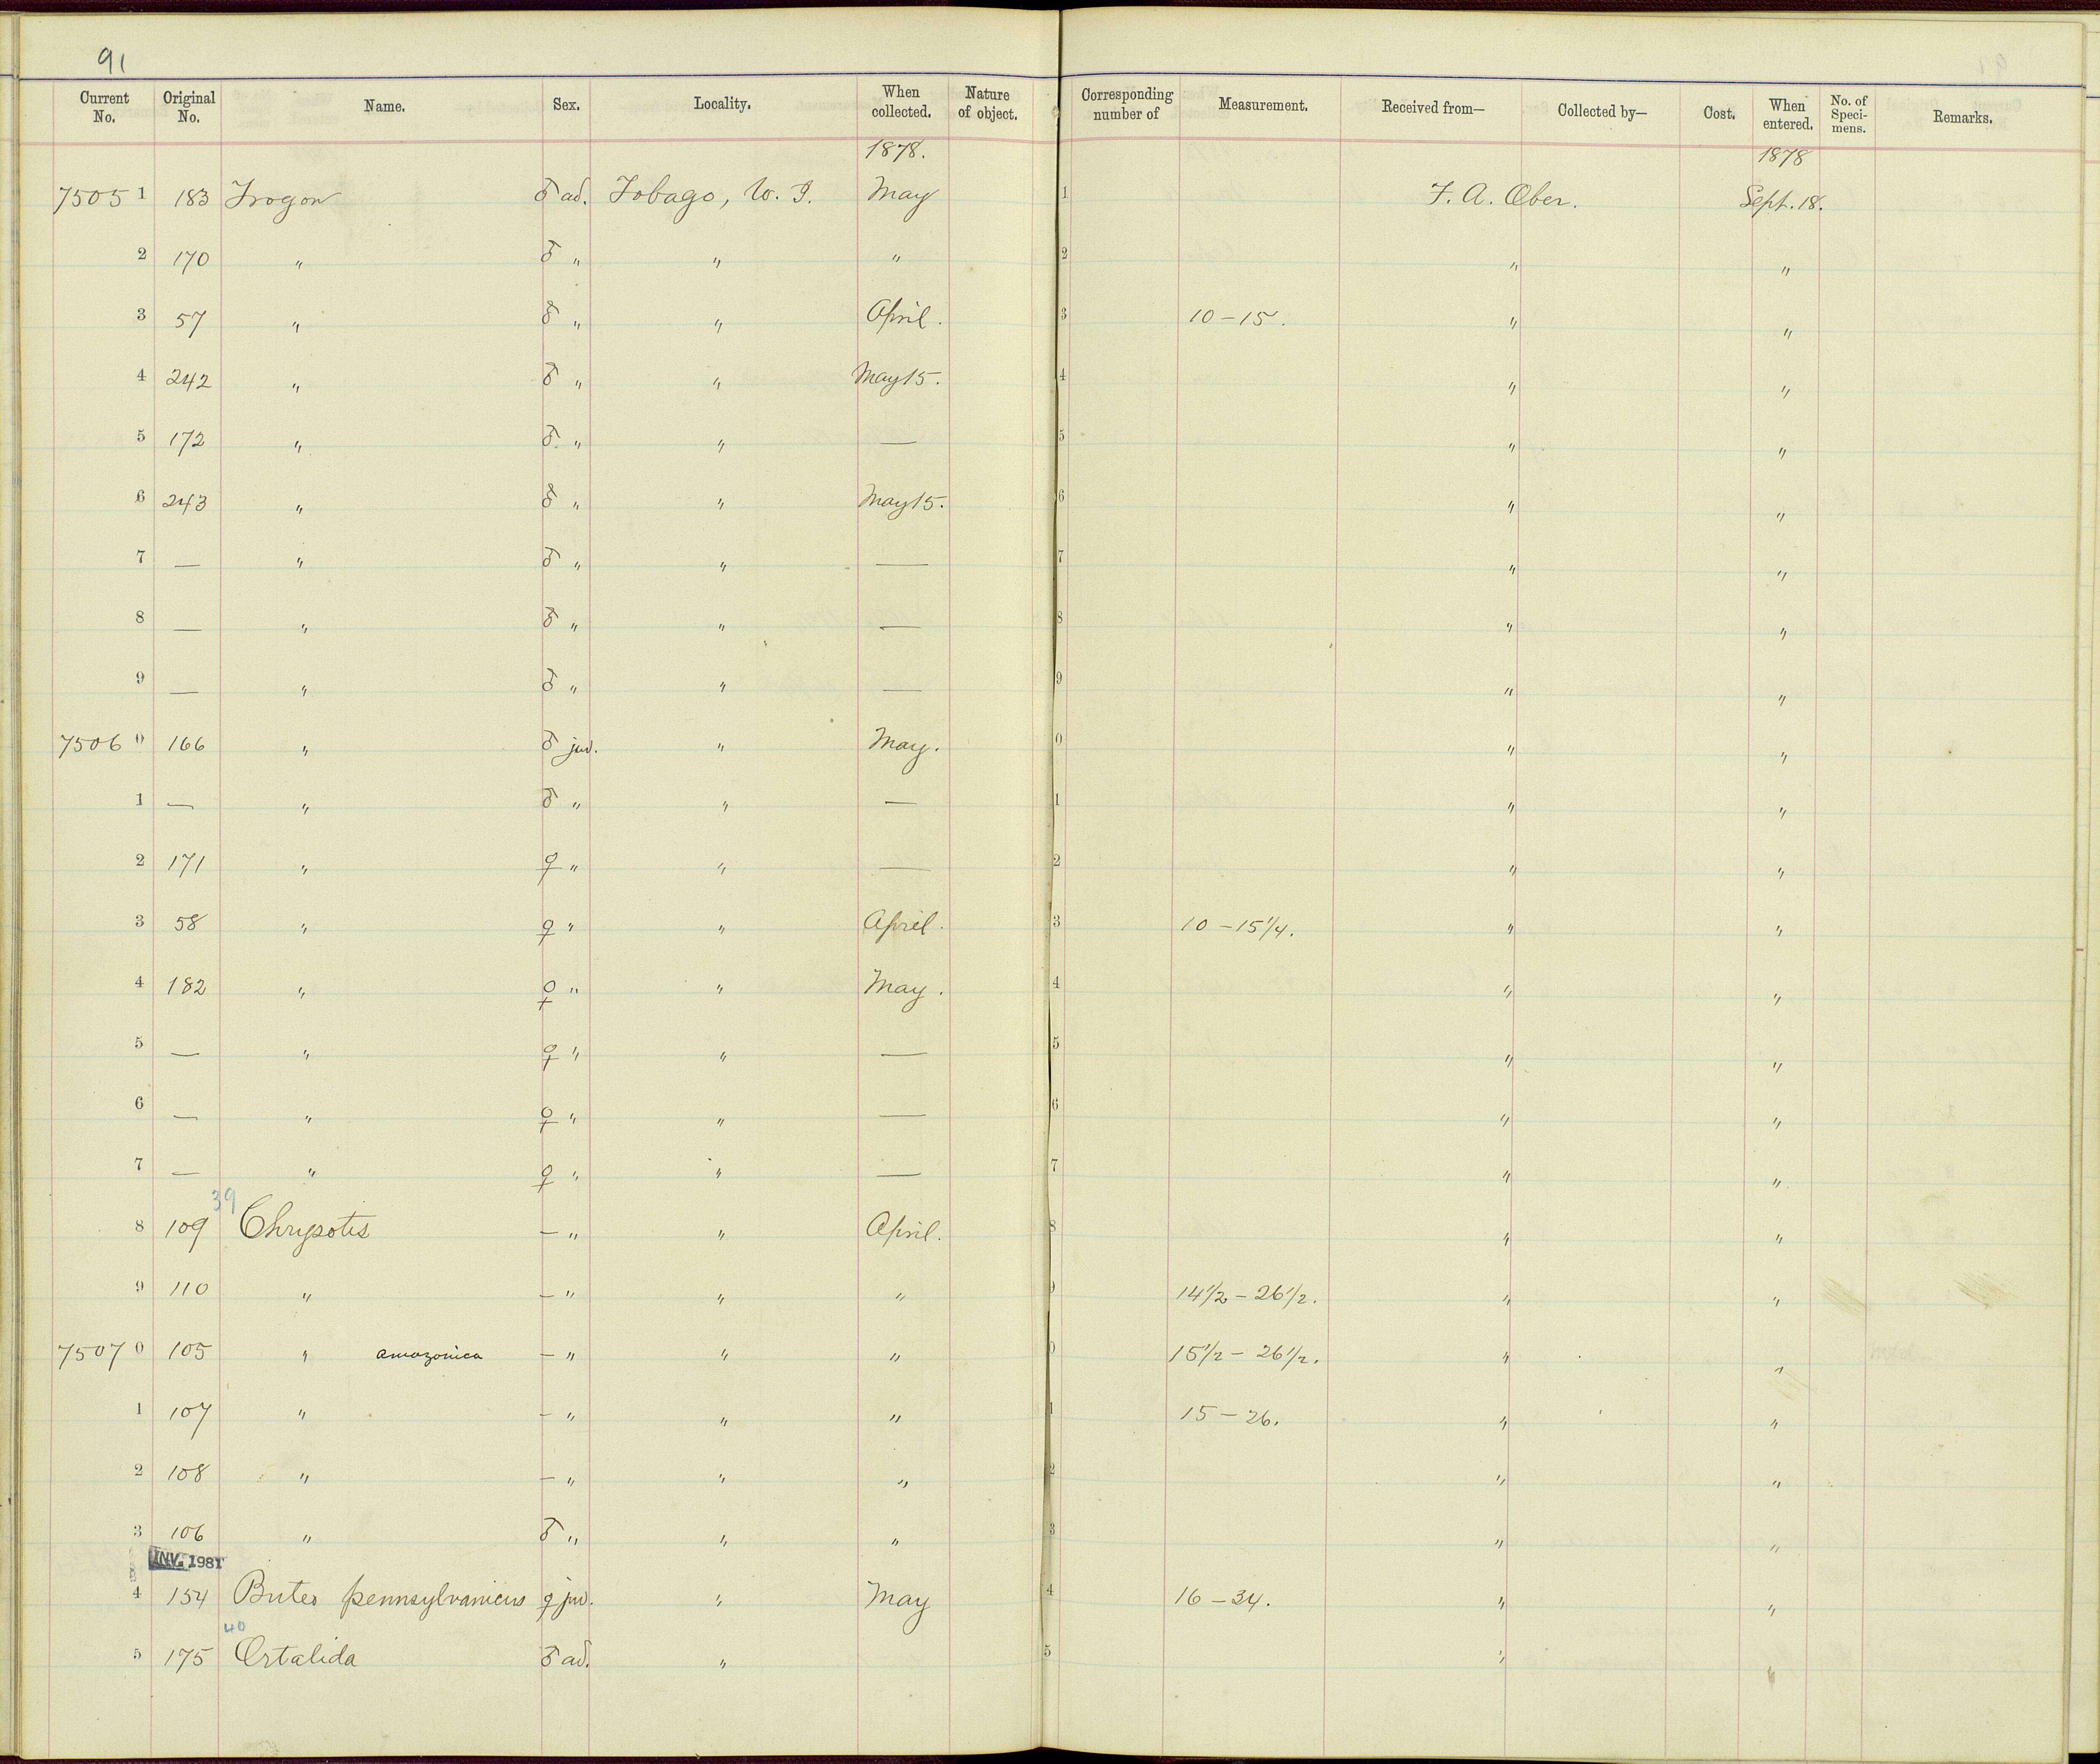 91
Current No. Original No. Name. Sex. Locality. When collected. Nature of object. Corresponding number of Measurement. Received from— Collected by— Cost. When entered. No. of Speci-mens. Remarks.
1878. 1878
7505 1 183 Trogon ♂ ad. Tobago, W. I. May 1 F. A. Ober. Sept. 18.
2 170 " ♂ " " " 2 " "
3 57 " ♂ " " April. 3 10 – 15. " "
4 242 " ♂ " " May 15. 4 " "
5 172 " ♂ " " — 5 " "
6 243 " ♂ " " May 15. 6 " "
7 — " ♂ " " — 7 " "
8 — " ♂ " " — 8 " "
9 — " ♂ " " — 9 " "
7506 0 166 " ♂ juv. " May. 0 " "
1 — " ♂ " " — 1 " "
2 171 " ♀ " " — 2 " "
3 58 " ♀ " " April. 3 10 – 15 1/4. " "
4 182 " ♀ " " May. 4 " "
5 — " ♀ " " — 5 " "
6 — " ♀ " " — 6 " "
7 — " ♀ " " — 7 " "
39
8 109 Chrysotis – " " April. 8 " "
9 110 " – " " " 9 14 1/2 – 26 1/2. " "
7507 0 105 " amazonica – " " " 0 15 1/2 – 26 1/2. " "
1 107 " – " " " 1 15 – 26. " "
2 108 " – " " " 2 " "
3 106 " ♂ " " " 3 " "
INV. 1981
4 154 Buteo pennsylvanicus ♀ juv. " May 4 16 – 34. " "
40
5 175 Ortalida ♂ ad. " 5 " "